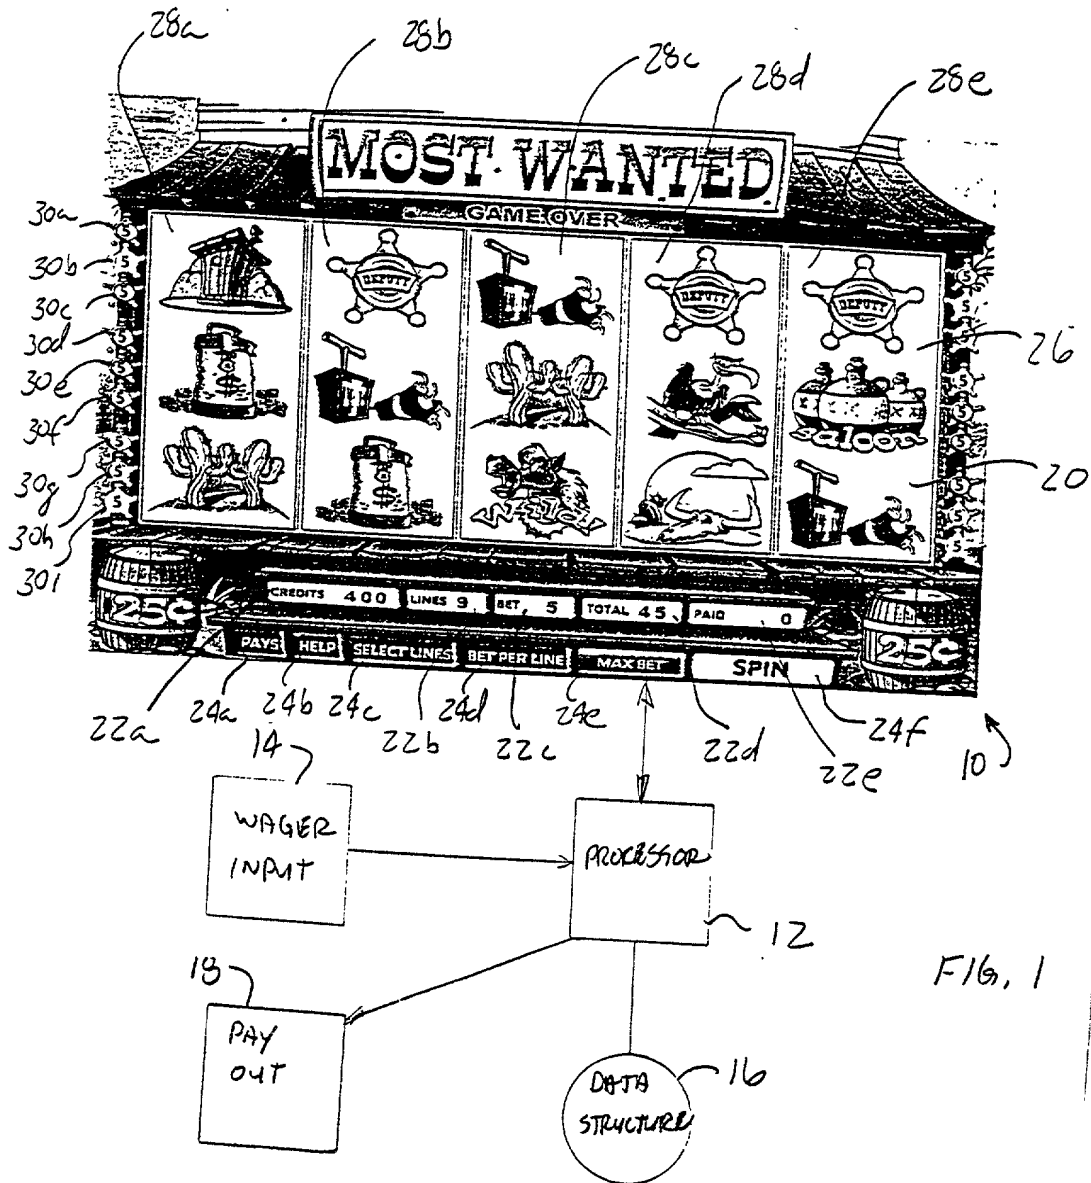 28a
28b
28c
28d
28e
MOST WANTED
GAME OVER
30a
30b
30c
30d
30e
30f
30g
30h
30i
DEPUTY
DEPUTY
DEPUTY
$
$
WANTED
XXX
saloon
26
20
25¢
CREDITS 400 LINES 9 BET 5 TOTAL 45 PAID 0
25¢
PAYS HELP SELECT LINES BET PER LINE MAX BET SPIN
22a 24a 24b 24c 22b 24d 22c 24e 22d 22e 24f 10
14
WAGER
INPUT
PROCESSOR
12
18
PAY
OUT
DATA
STRUCTURE
16
FIG. 1